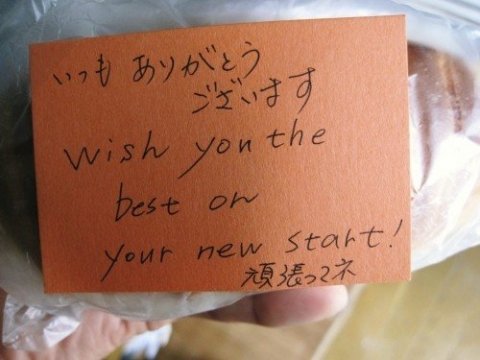 いつも ありがとう
ございます
Wish you the
best on
your new start!
頑張ってネ